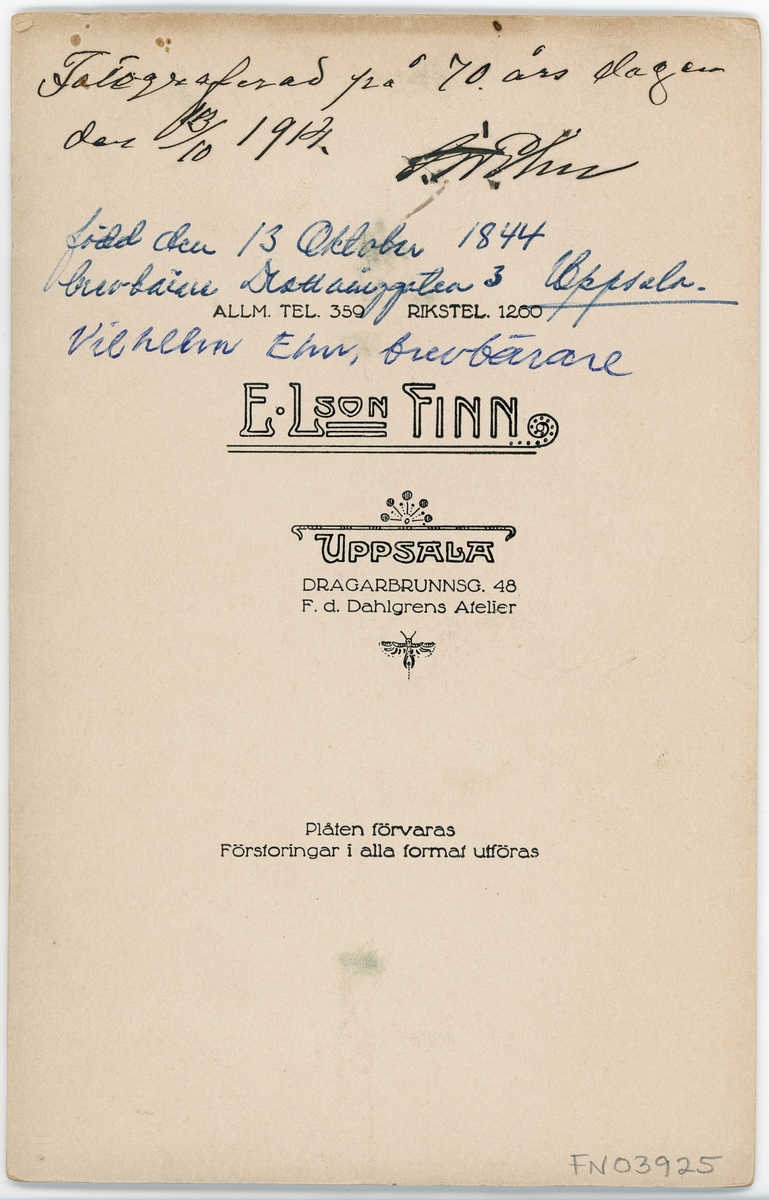 Fotograferad på 70. års dagen
den 13/10 1914. Ehn
född den 13 Oktober 1844
brevbärare Drottninggatan 3 Uppsala.
ALLM. TEL. 350 RIKSTEL. 1260
Vilhelm Ehn, brevbärare
E. LSON FINN
UPPSALA
DRAGARBRUNNSG. 48
F. d. Dahlgrens Atelier
Plåten förvaras
Förstoringar i alla format utföras
FN03925